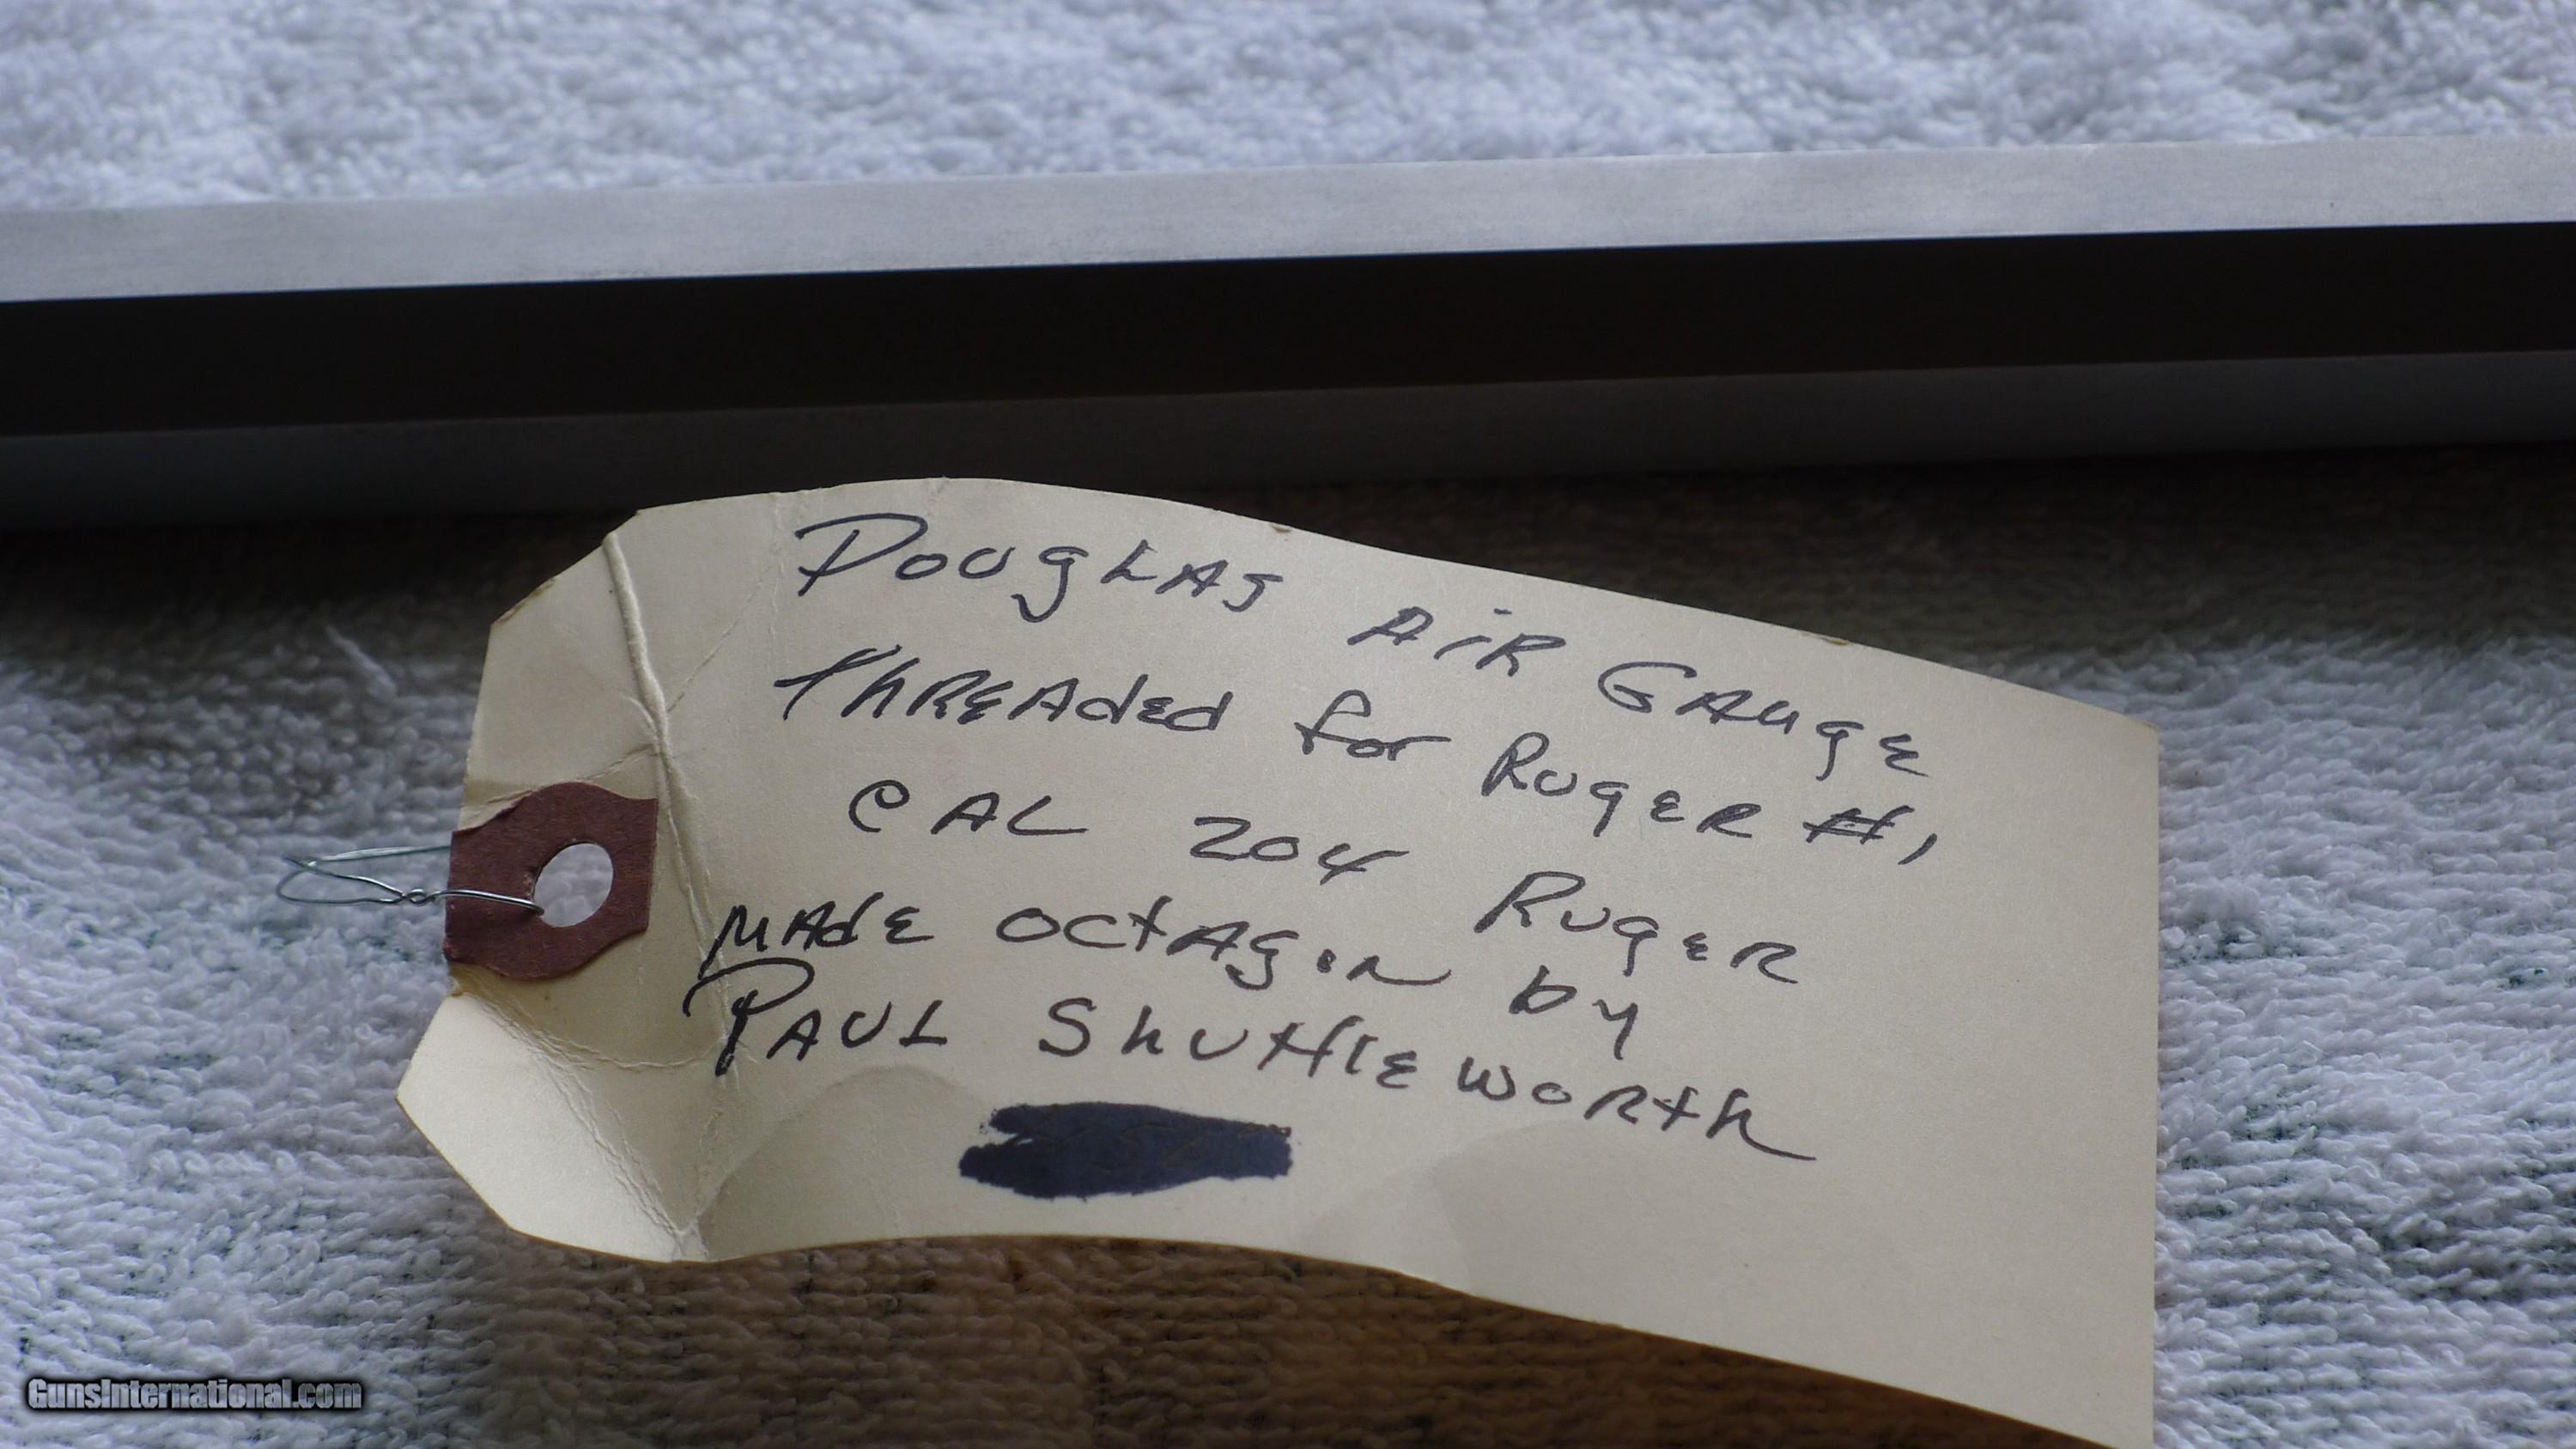 Douglas Air Gauge
Threaded for Ruger #1
CAL 204 Ruger
Made octagon by
Paul Shuttleworth
GunsInternational.com